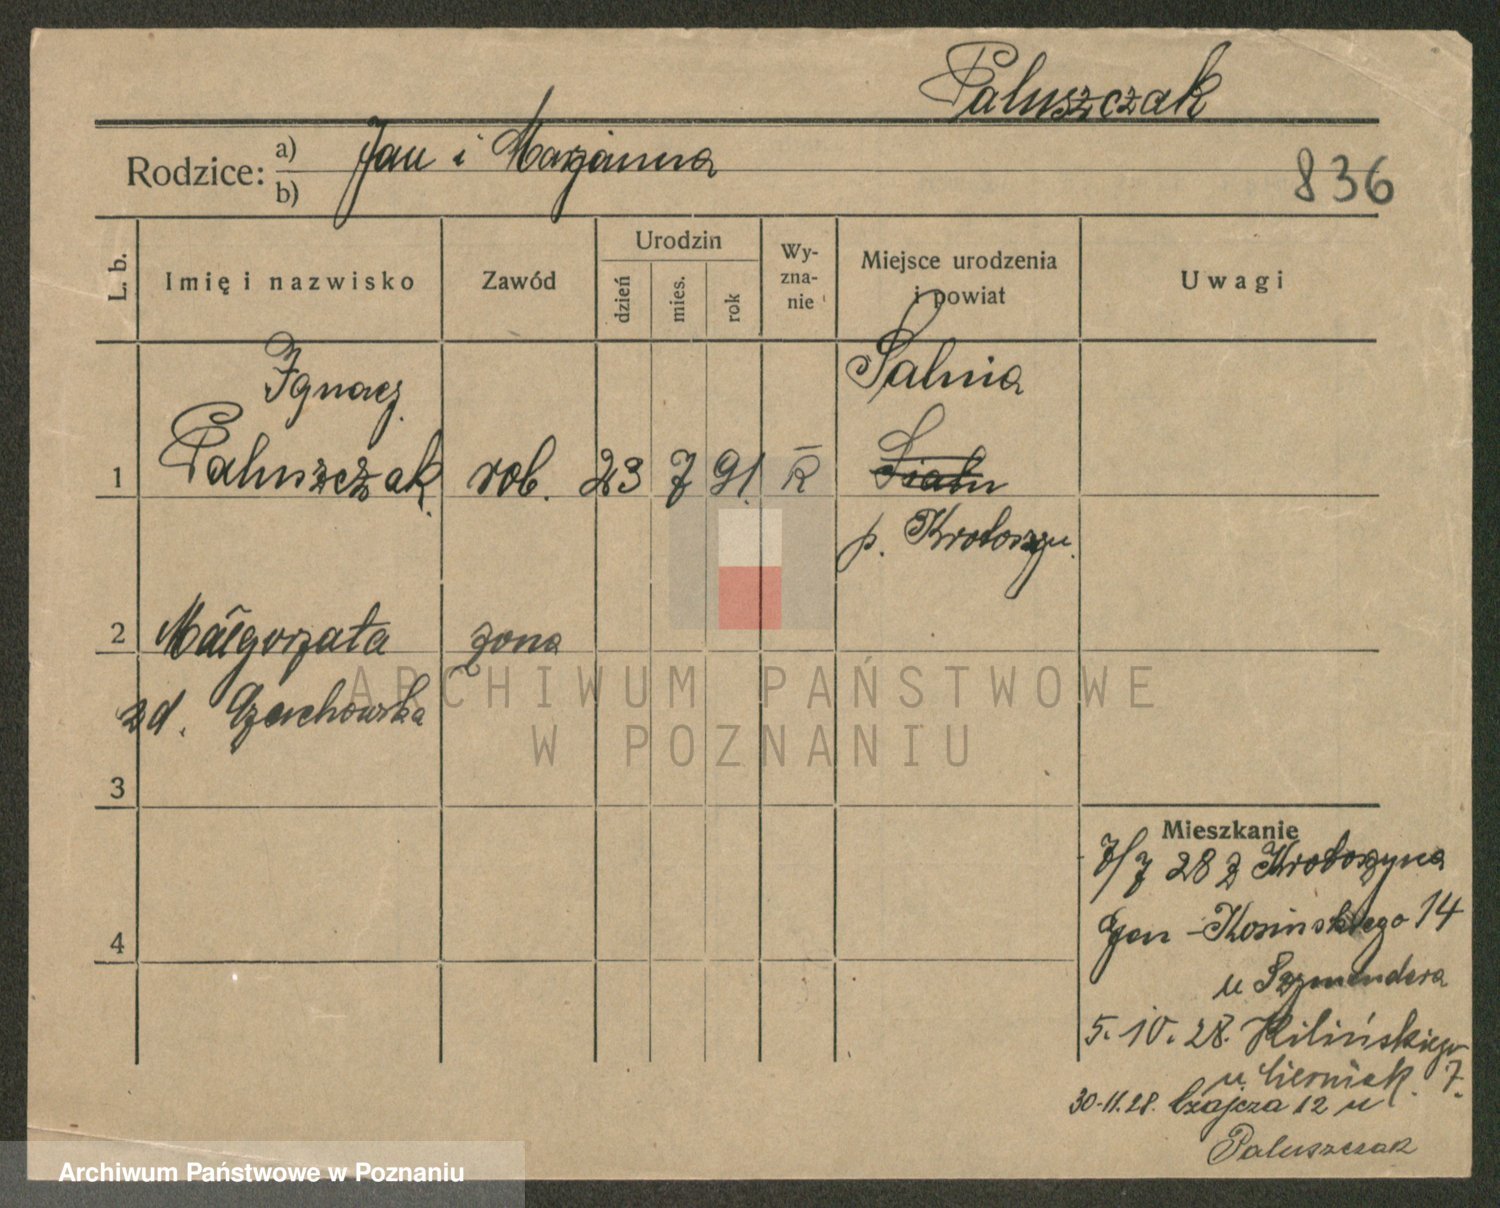 Paluszczak
Rodzice: a) Jan i Marjanna
b)
836
L. b.
Imię i nazwisko
Zawód
Urodzin
dzień
mies.
rok
Wy-
zna-
nie
Miejsce urodzenia
i powiat
Uwagi
Ignacy
Salnia
1 Paluszczak rob. 23 7 91. R
p. Krotoszyn.
2 Małgorzata żona
zd. Czachowska
ARCHIWUM PAŃSTWOWE
W POZNANIU
3
Mieszkanie
7/7 28 z Krotoszyna
4
Gen-Kosińskiego 14
u Szymendera
5.10.28. Kilińskiego
u Cierniak. 7.
30-11.28. Czajcza 12 u
Paluszczak
Archiwum Państwowe w Poznaniu